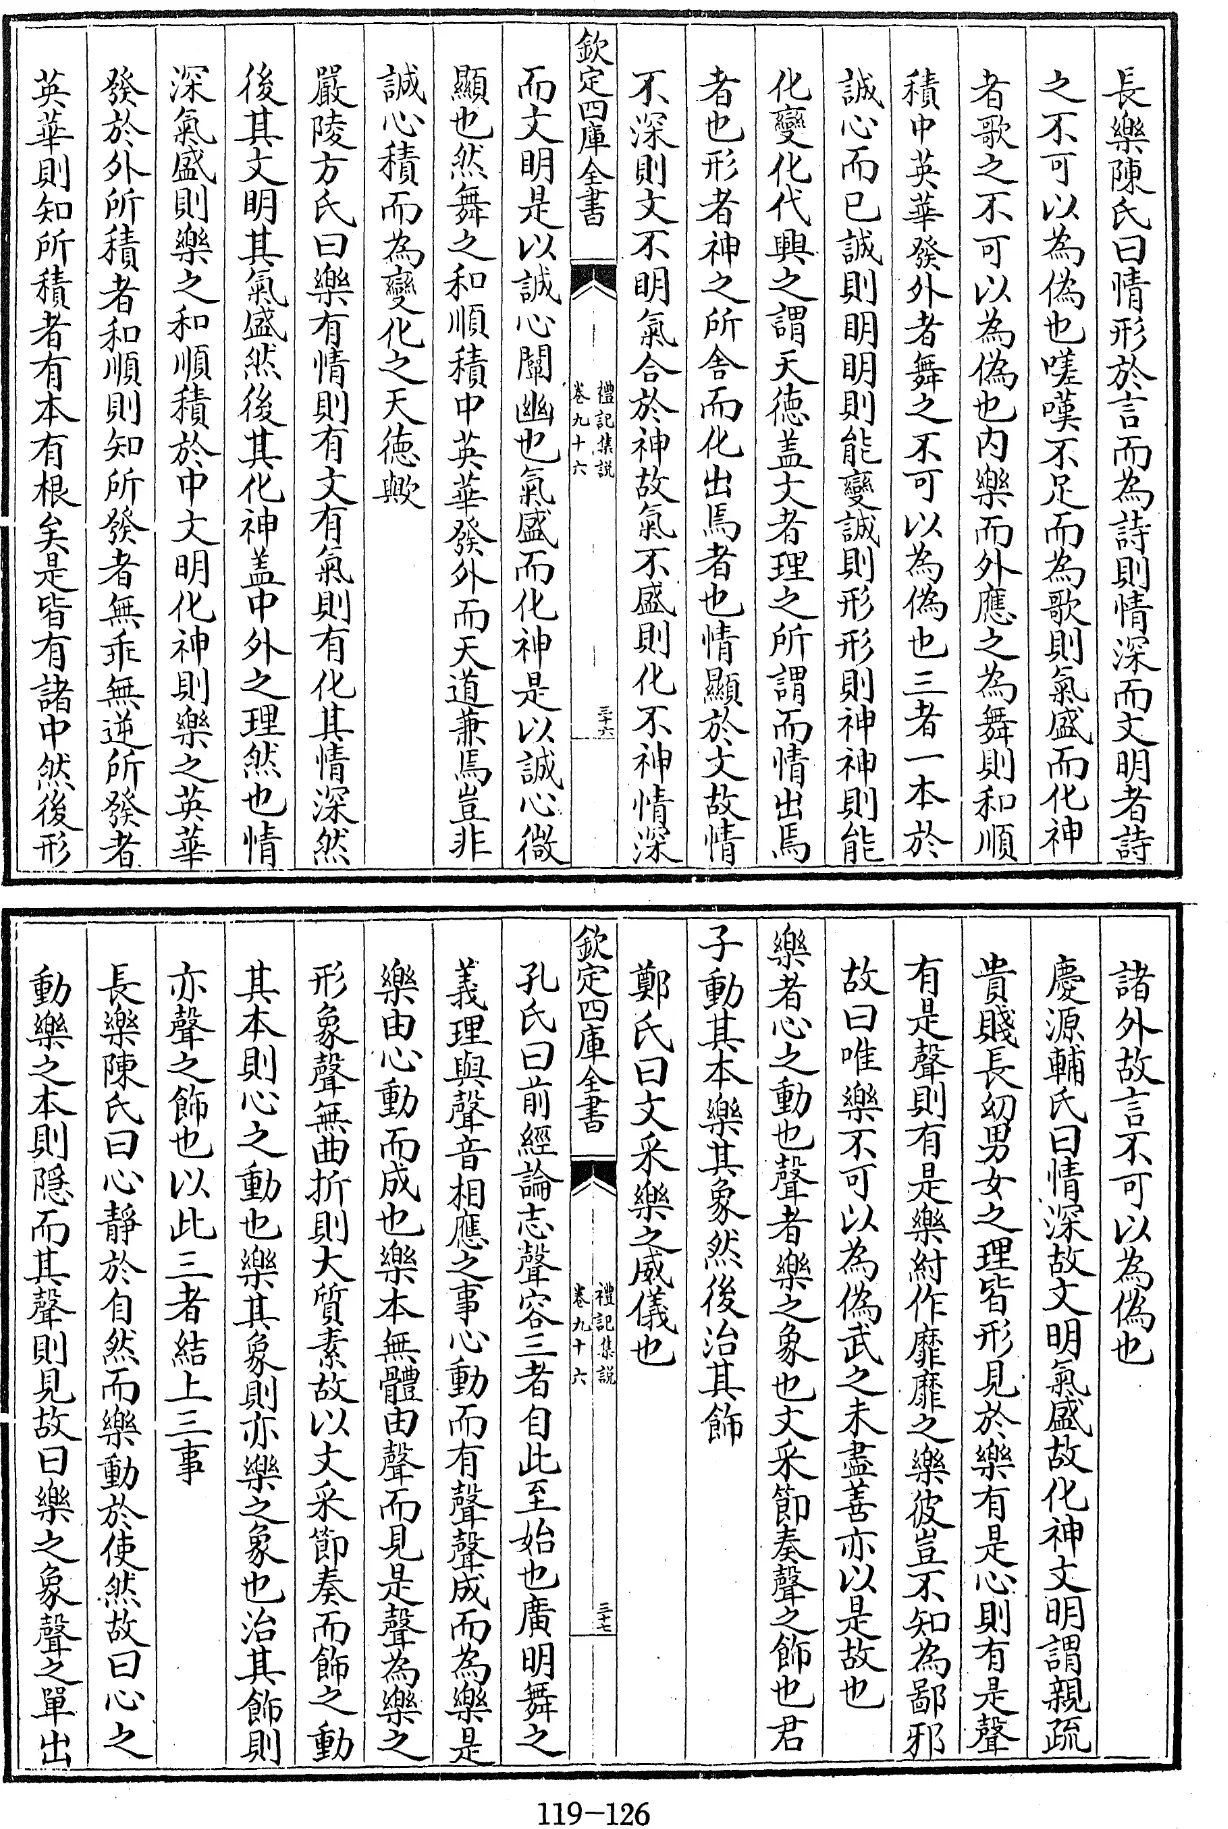 長樂陳氏曰情形於言而為詩則情深而文明者詩
之不可以為偽也嗟嘆不足而為歌則氣盛而化神
者歌之不可以為偽也内樂而外應之為舞則和順
積中英華發外者舞之不可以為偽也三者一本於
誠心而已誠則明明則能變誠則形形則神神則能
化變化代興之謂天徳盖文者理之所謂而情出焉
者也形者神之所舎而化出焉者也情顯於文故情
不深則文不明氣合於神故氣不盛則化不神情深
欽定四庫全書
禮記集説
卷九十六
三十六
而文明是以誠心闡幽也氣盛而化神是以誠心微
顯也然舞之和順積中英華發外而天道兼焉豈非
誠心積而為變化之天徳歟
嚴陵方氏曰樂有情則有文有氣則有化其情深然
後其文明其氣盛然後其化神盖中外之理然也情
深氣盛則樂之和順積於中文明化神則樂之英華
發於外所積者和順則知所發者無乖無逆所發者
英華則知所積者有本有根矣是皆有諸中然後形
諸外故言不可以為偽也
慶源輔氏曰情深故文明氣盛故化神文明謂親疏
貴賤長幼男女之理皆形見於樂有是心則有是聲
有是聲則有是樂紂作靡靡之樂彼豈不知為鄙邪
故曰唯樂不可以為偽武之未盡善亦以是故也
樂者心之動也聲者樂之象也文采節奏聲之飾也君
子動其本樂其象然後治其飾
鄭氏曰文采樂之威儀也
欽定四庫全書
禮記集説
卷九十六
三十七
孔氏曰前經論志聲容三者自此至始也廣明舞之
義理與聲音相應之事心動而有聲聲成而為樂是
樂由心動而成也樂本無體由聲而見是聲為樂之
形象聲無曲折則大質素故以文采節奏而飾之動
其本則心之動也樂其象則亦樂之象也治其飾則
亦聲之飾也以此三者結上三事
長樂陳氏曰心靜於自然而樂動於使然故曰心之
動樂之本則隱而其聲則見故曰樂之象聲之單出
119-126